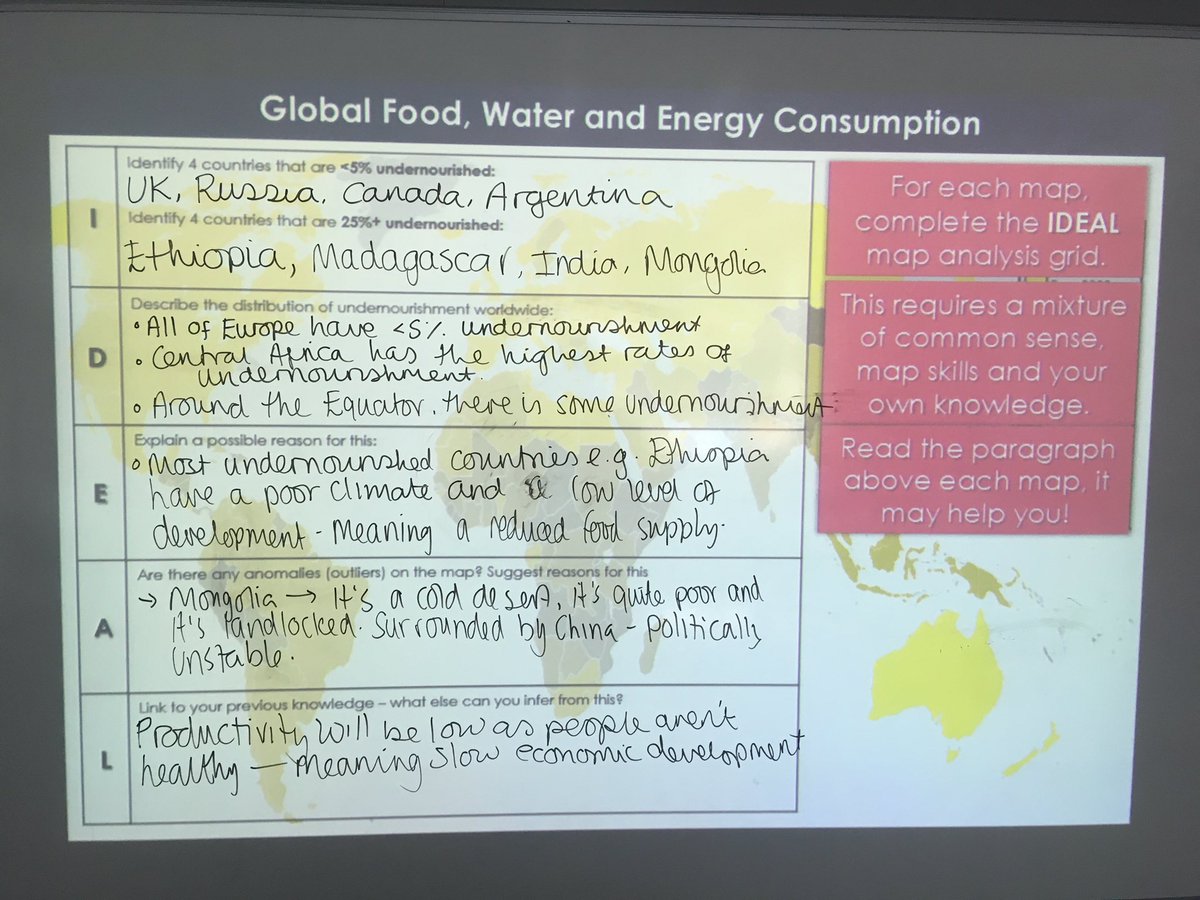 Global Food, Water and Energy Consumption
I
Identify 4 countries that are <5% undernourished:
UK, Russia, Canada, Argentina
Identify 4 countries that are 25%+ undernourished:
Ethiopia, Madagascar, India, Mongolia
D
Describe the distribution of undernourishment worldwide:
• All of Europe have <5% undernourishment
• Central Africa has the highest rates of
undernourishment.
• Around the Equator, there is some undernourishment
E
Explain a possible reason for this:
• Most undernourished countries e.g. Ethiopia
have a poor climate and a low level of
development - Meaning a reduced food supply.
A
Are there any anomalies (outliers) on the map? Suggest reasons for this
→ Mongolia → It's a cold desert, it's quite poor and
it's landlocked. Surrounded by China - Politically
Unstable.
L
Link to your previous knowledge – what else can you infer from this?
Productivity will be low as people aren't
healthy — meaning slow economic development
For each map,
complete the IDEAL
map analysis grid.
This requires a mixture
of common sense,
map skills and your
own knowledge.
Read the paragraph
above each map, it
may help you!